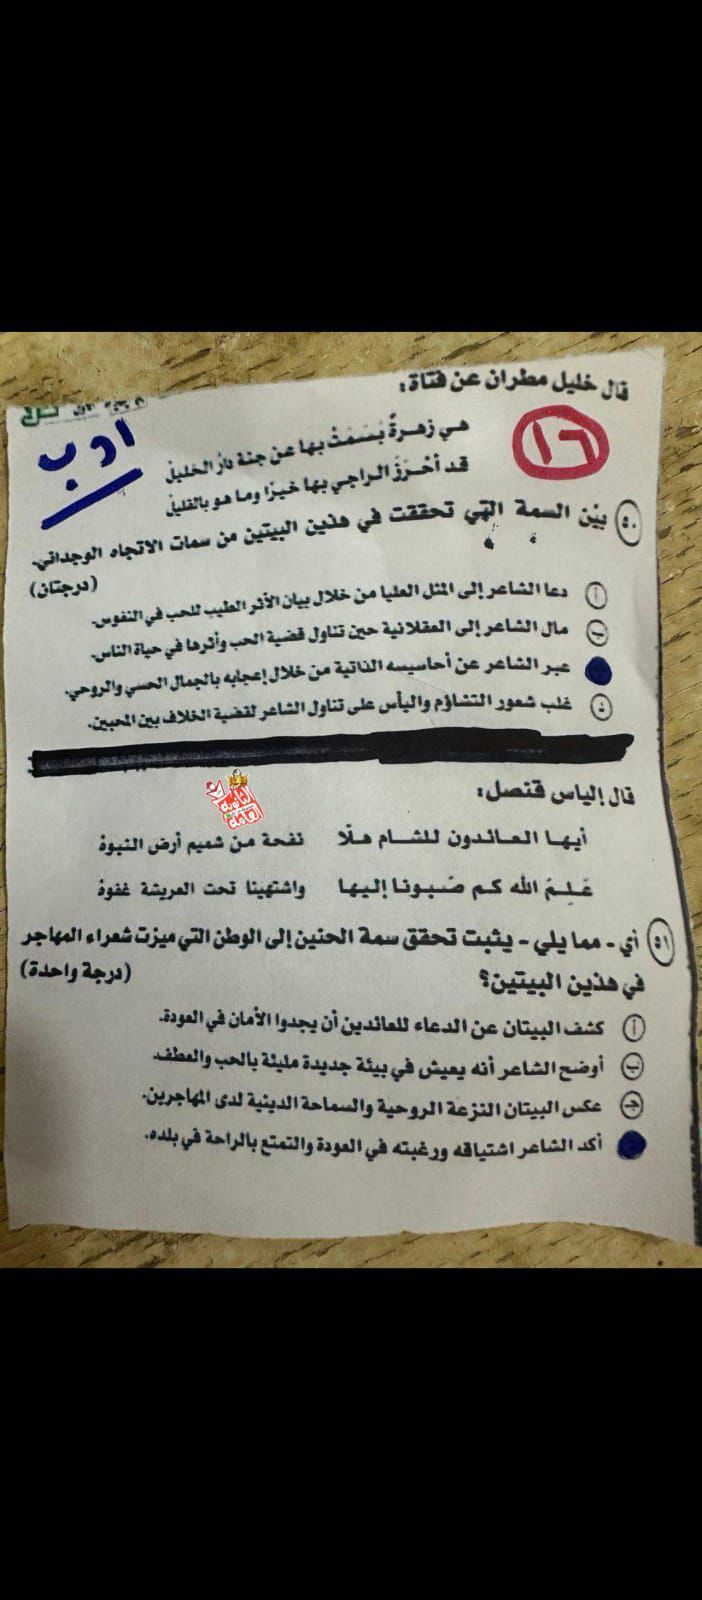 قال خليل مطران عن فتاة:
١٦
ادب
هي زهرةٌ بَسَمَتْ بها عن جنة دارُ الخليلْ
قد أحْرَزَ الراجي بها خيرًا وما هو بالقليلْ
٥٠ بيّن السمة التي تحققت في هذين البيتين من سمات الاتجاه الوجداني.
(درجتان)
أ دعا الشاعر إلى المثل العليا من خلال بيان الأثر الطيب للحب في النفوس.
ب مال الشاعر إلى العقلانية حين تناول قضية الحب وأثرها في حياة الناس.
عبر الشاعر عن أحاسيسه الذاتية من خلال إعجابه بالجمال الحسي والروحي.
د غلب شعور التشاؤم واليأس على تناول الشاعر لقضية الخلاف بين المحبين.
الثانوية
العامة
قال إلياس قنصل:
أيها العائدون للشام هلّا نفحة من شميم أرض النبوة
عَلِمَ الله كم صَبونا إليها واشتهينا تحت العريشة غفوة
٥١ أي - مما يلي - يثبت تحقق سمة الحنين إلى الوطن التي ميزت شعراء المهاجر
في هذين البيتين؟ (درجة واحدة)
أ كشف البيتان عن الدعاء للعائدين أن يجدوا الأمان في العودة.
ب أوضح الشاعر أنه يعيش في بيئة جديدة مليئة بالحب والعطف.
ج عكس البيتان النزعة الروحية والسماحة الدينية لدى المهاجرين.
أكد الشاعر اشتياقه ورغبته في العودة والتمتع بالراحة في بلده.